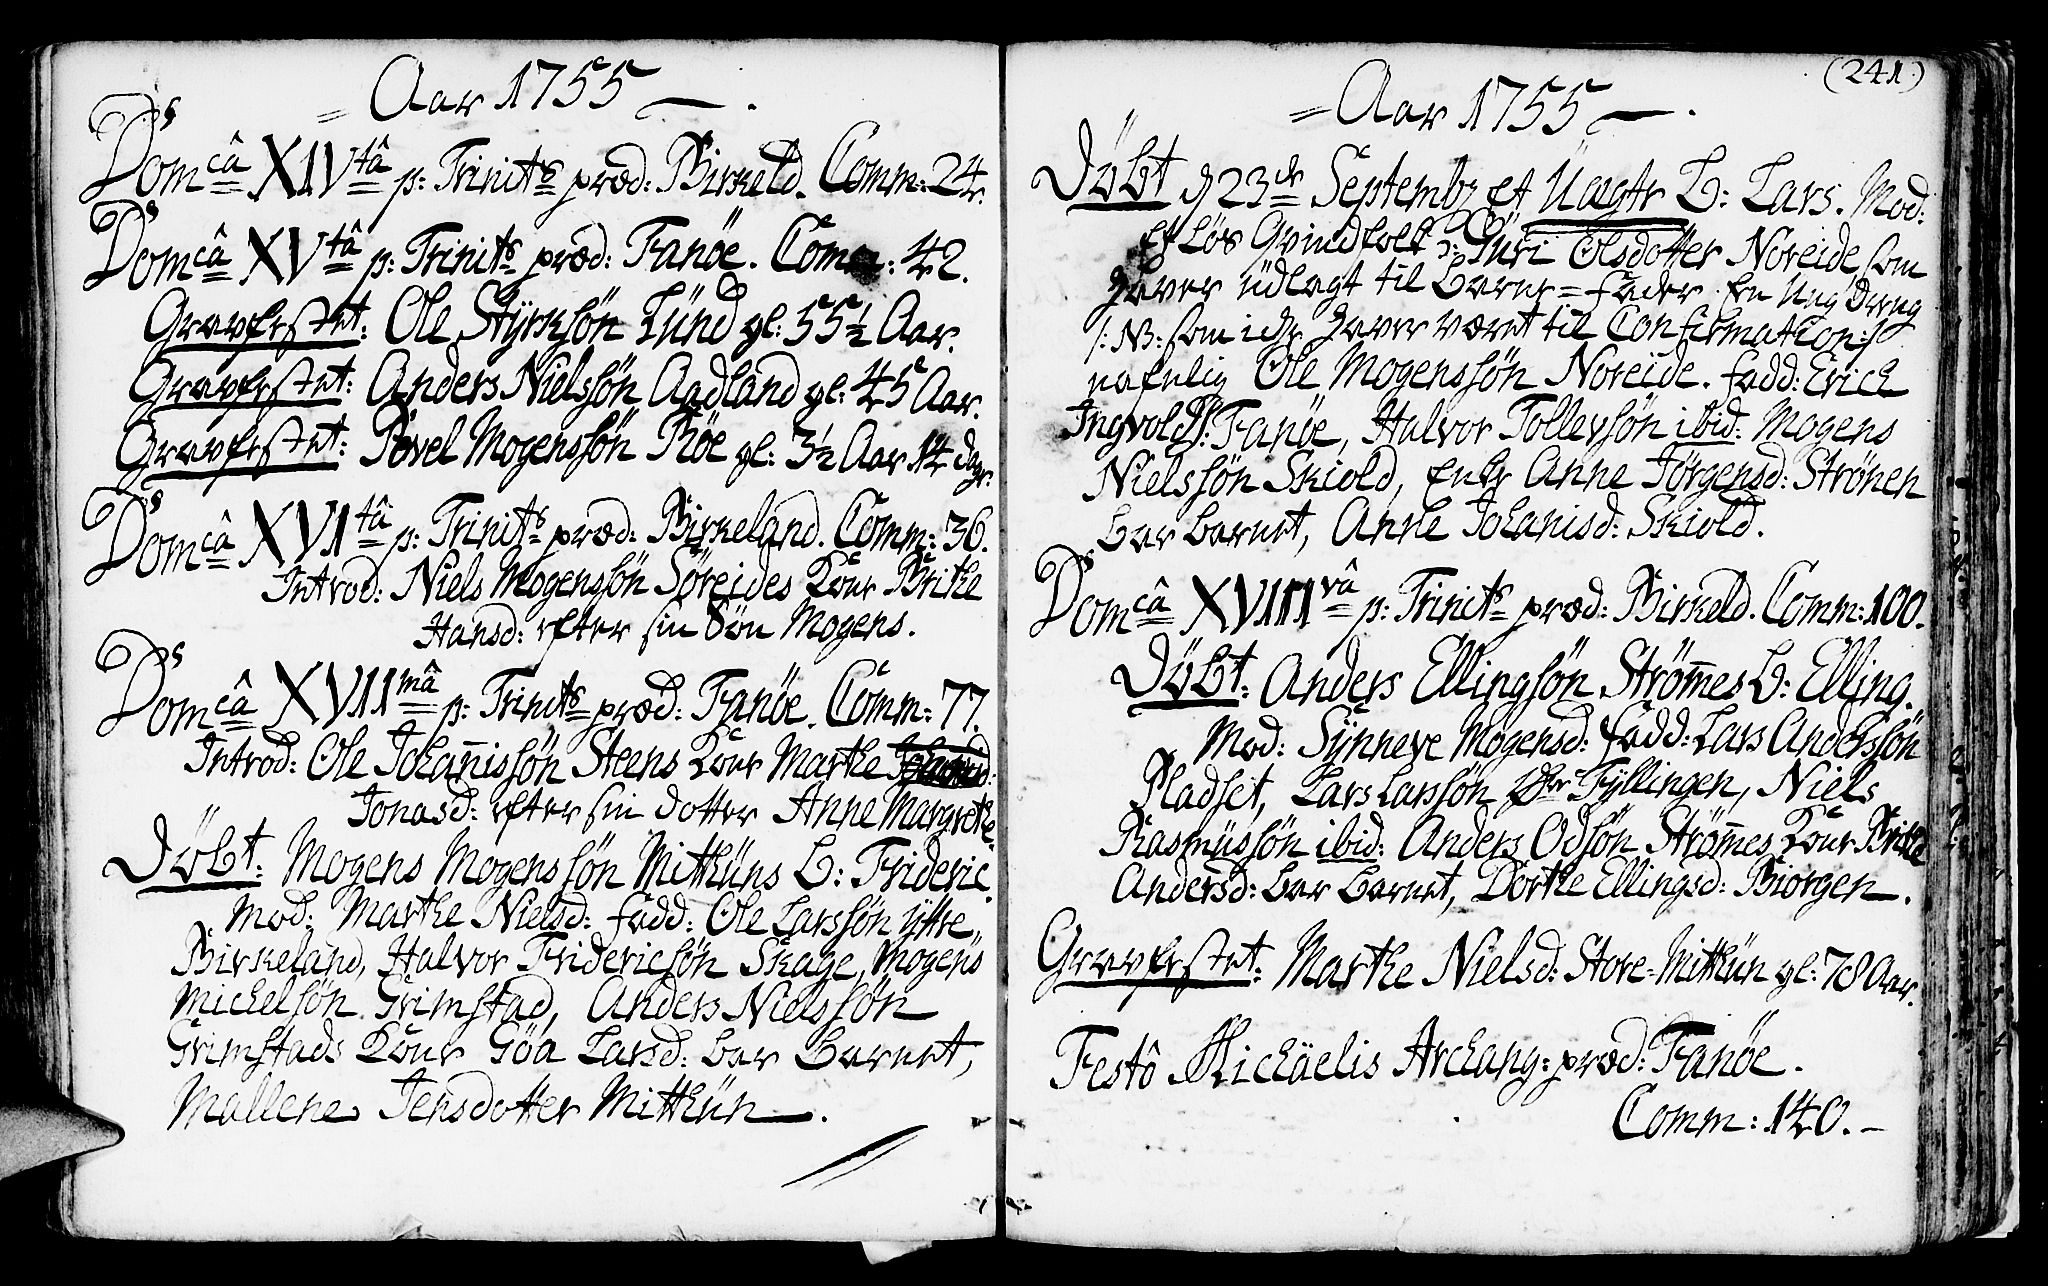 = Aar 1755 — .
Ds
Domcâ XIVtâ p: Trinits præd: Birkeld. Comm: 24.
Ds
Domcâ XVtâ p: Trinits præd: Fanöe. Comm: 42.
Gravfestet: Ole Styrksøn Lünd gl: 55½ Aar.
Gravfestet: Anders Nielssøn Aadland gl: 45 Aar.
Gravfestet: Povel Mogenssøn Röe gl: 3½ Aar 14 dage.
Ds
Domcâ XVItâ p: Trinits præd: Birkeland. Comm: 36.
Introd: Niels Mogenssøn Söreides Kone Brithe
Hansd: efter sin Søn Mogens.
Ds
Domcâ XVIImâ p: Trinits præd: Fanöe. Comm: 77.
Introd: Ole Johanissøn Steens Kone Marthe
Jonasd: efter sin dotter Anne Margrethe.
Døbt: Mogens Mogenssøn Mitthüns b: Frideric.
Mod: Marthe Nielsd: fadd: Ole Larssøn ÿttre
Birkeland, Halvor Fridericsøn Skage, Mogens
Michelsøn Grimstad, Anders Nielssøn
Grimstads Kone Göa Larsd: bar barnet,
Mallene Jensdotter Mitthün — .
(241)
= Aar 1755 — .
Døbt d 23de Septembr et Uægte b: Lars. Mod:
et løs Qvindfolk ɔ: Güri Olsdotter Noreide som
haver üdlagt til barne=fader en Ung dreng
/: NB: som icke haver været til Confirmation :/
nafnlig Ole Mogenssøn Noreide. fadd: Erick
Ingvolds: Fanöe, Halvor Tollevsøn ibid: Mogens
Nielssøn Skiold, Enke Anne Jörgensd: Strönen
bar barnet, Anne Johanisd: Skiold.
Ds
Domcâ XVIIIvâ p: Trinits præd: Birkeld. Comm: 100.
Døbt: Anders Ellingsøn Strömes b: Elling.
Mod: Synneve Mogensd: fadd: Lars Anderssøn
Pladset, Lars Larssøn Øvre Fyllingen, Niels
Rasmüssøn ibid: Anders Odsøn Strömes Kone Brithe
Andersd: bar barnet, Dorthe Ellingsd: Biörgen — .
Gravfestet: Marthe Nielsd: Store-Mitthün gl: 78 Aar.
Festô Michäelis Archang: præd: Fanöe.
Comm: 140. —